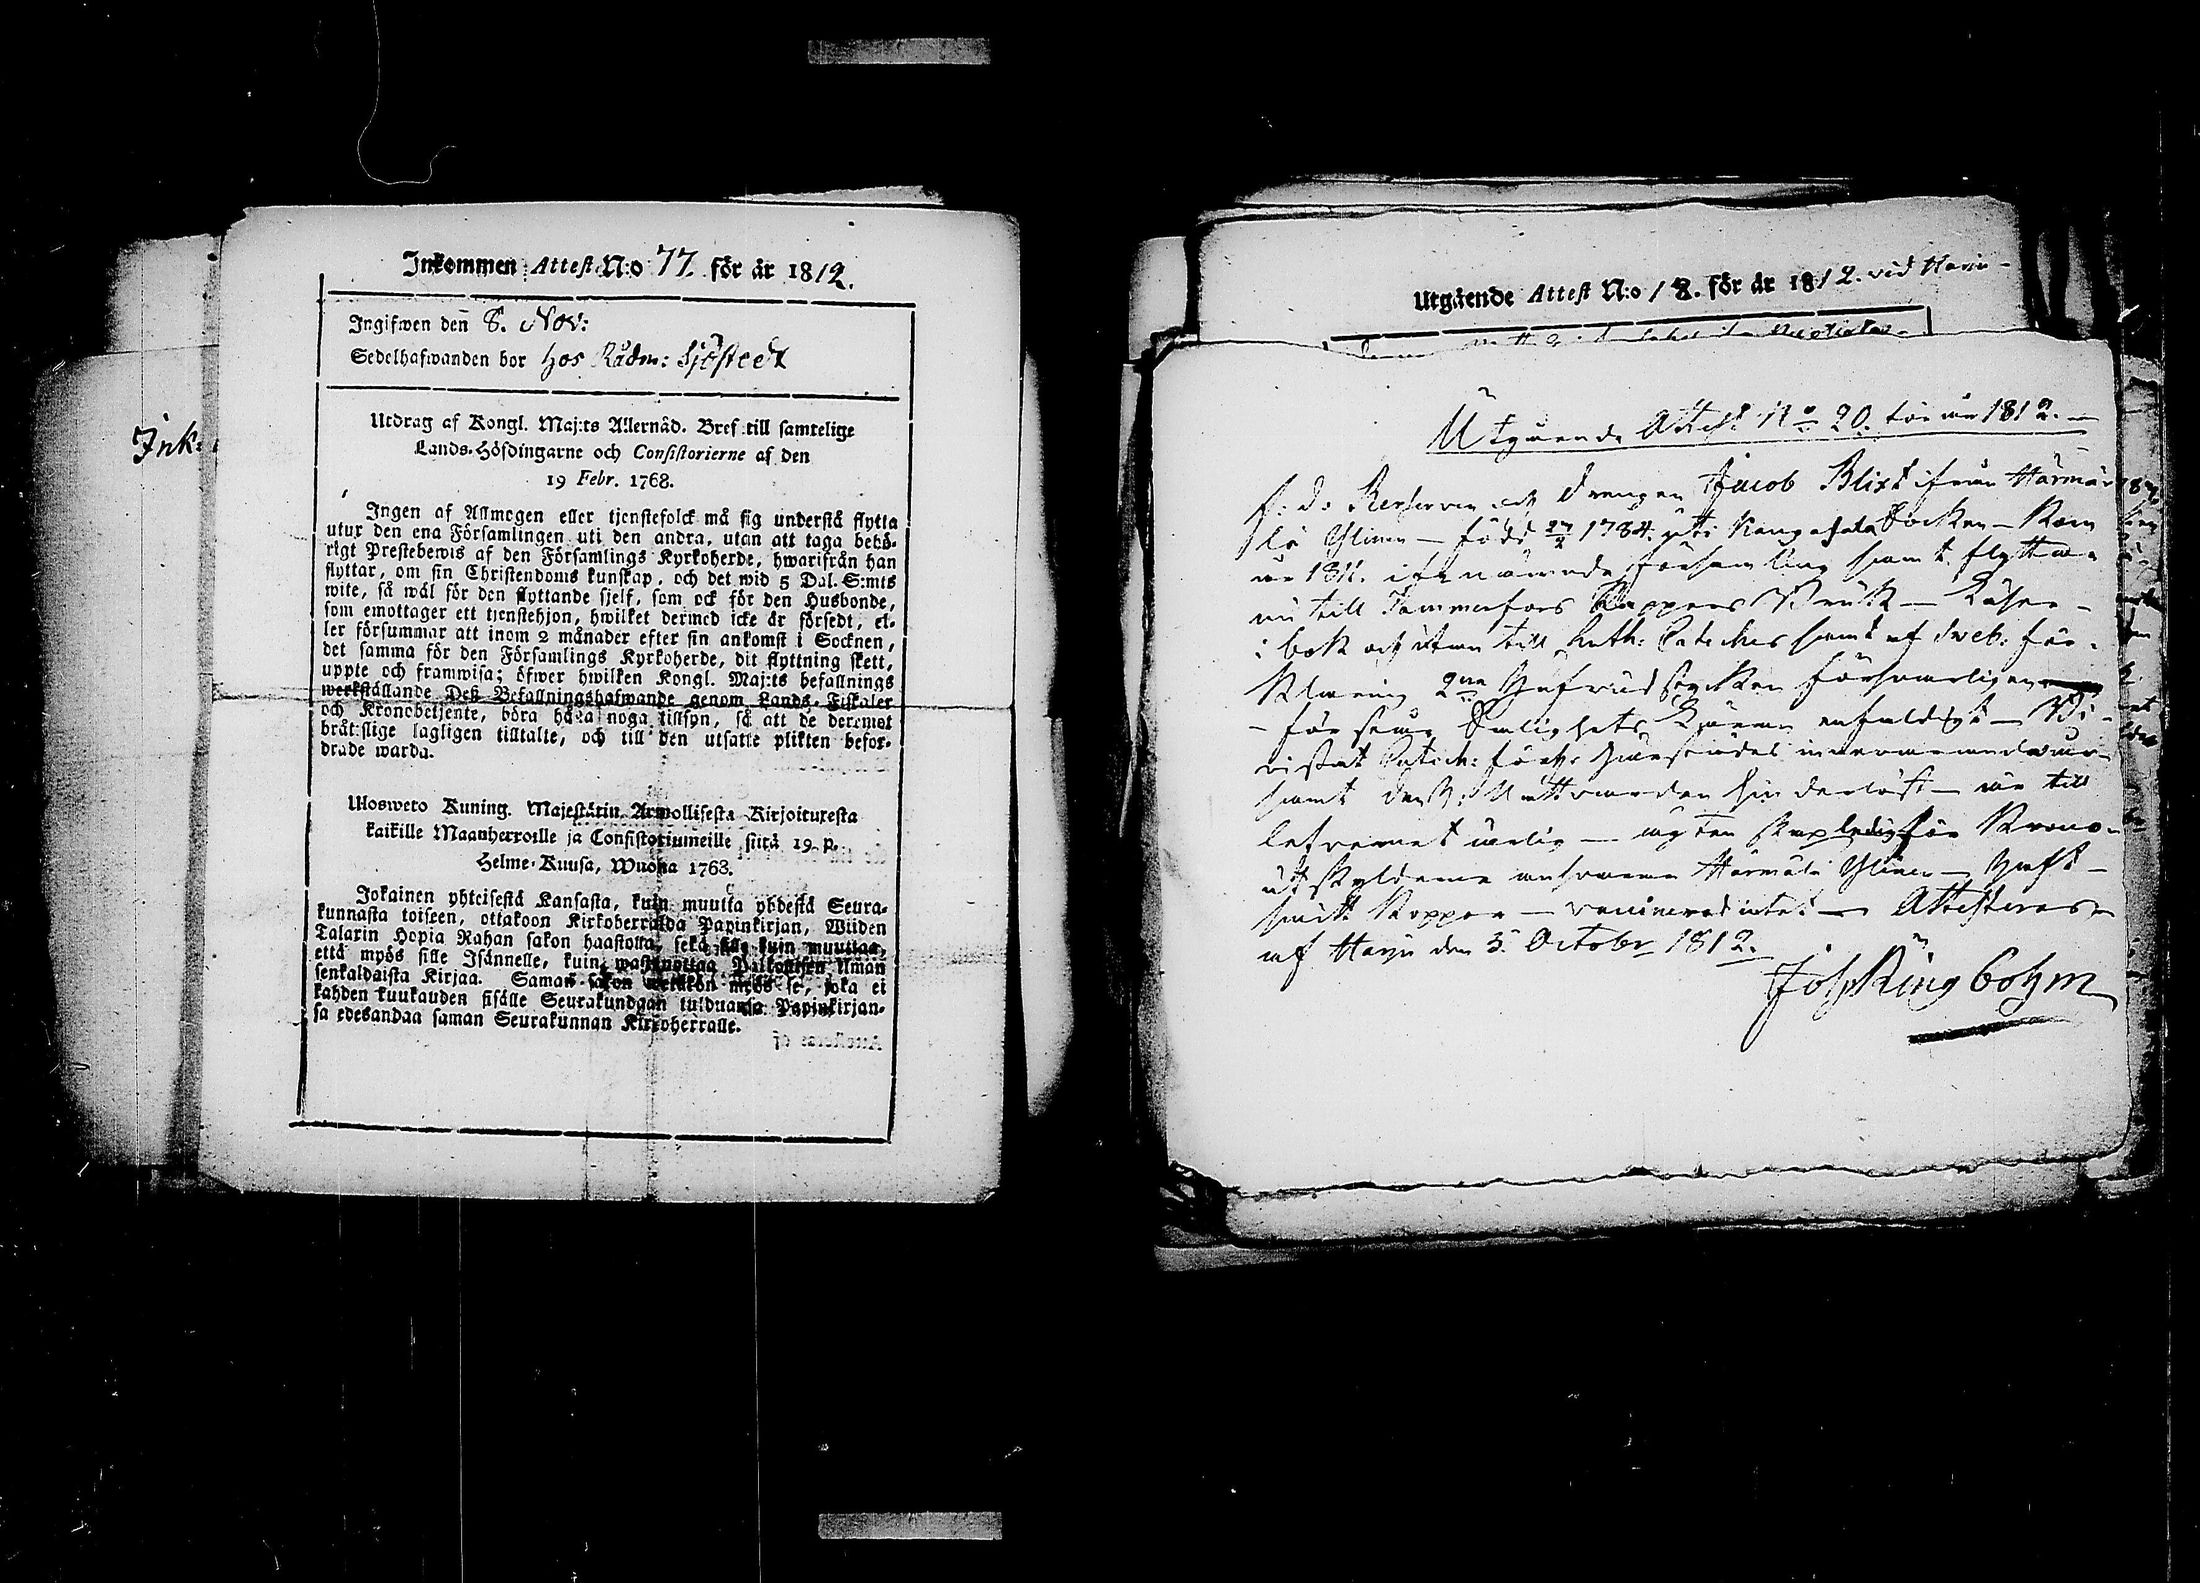 Ink:
Inkommen Attest N:o 77. för år 1812.
Ingifwen den 8. Nov:
Sedelhafwanden bor hos Rådm: Sjöstedt
Utdrag af Kongl. Maj:ts Allernåd. Bref till samtelige
Lands-Höfdingarne och Consistorierne af den
19 Febr. 1768.
Ingen af Allmogen eller tjenstefolck må sig understå flytta
utur den ena Församlingen uti den andra, utan att taga behö-
rigt Prestebewis af den Församlings Kyrkoherde, hwarifrån han
flyttar, om sin Christendoms kunskap, och det wid 5 Dal. S:mts
wite, så wäl för den flyttande sjelf, som ock för den Husbonde,
som emottager ett tjenstehjon, hwilket dermed icke är försedt, el-
ler försummar att inom 2 månader efter sin ankomst i Socknen,
det samma för den Församlings Kyrkoherde, dit flyttning skett,
uppte och framwisa; öfwer hwilken Kongl. Maj:ts befallnings
werkställande Deß Befallningshafwande genom Lands-Fiskaler
och Kronobetjente, böra hafwa noga tillsyn, så att de deremot
bråtslige lagligen tilltalte, och till den utsatte plikten befor-
drade warda.
Ulosweto Kuning. Majestätin Armollisesta Kirjoituxesta
kaikille Maanherroille ja Consistoriumeille siitä 19 p.
Helme-Kuusa, Wuonna 1768.
Jokainen yhteisestä Kansasta, kuin muutta yhdestä Seura-
kunnasta toiseen, ottakoon Kirkoherralda Papinkirjan, Wiiden
Talarin Hopia Rahan sakon haastolla, sekä sille kuin muuttaa,
että myös sille Isännelle, kuin wastanottaa Palkollisen ilman
senkaldaista Kirjaa. Saman sakon wetäkön myös se, joka ei
kahden kuukauden sisälle Seurakundaan tulduansa Papinkirjan-
sa edesandaa saman Seurakunnan Kirkoherralle.
Utgående Attest N:o 18. för år 1812. vid Harju-
Utgående Attest N:o 20. för år 1812.
f: d: Reserven och Drengen Jacob Blixt ifrån Härmä-
lä Ylinen – född 27/2 1784. uti Kangasala Socken – Kom
år 1811. ifrån nämnde församling samt flyttar
nu till Tammerfors Pappers Bruk – Läser
i bok och utan till Luth: Cateches samt af Sveb: för-
klaring 2ne Hufvudstycken försvarligen
samt Nattvarden hinderlöst – är till
lefvernet ärlig – ägten skap ledig för Krono-
utskylderne ansvarar Härmälä Ylinen – Haft
Koppor – vaccinerad intet – Attesteras
af Harju den 3. October 1812.
Joh Ringbohm